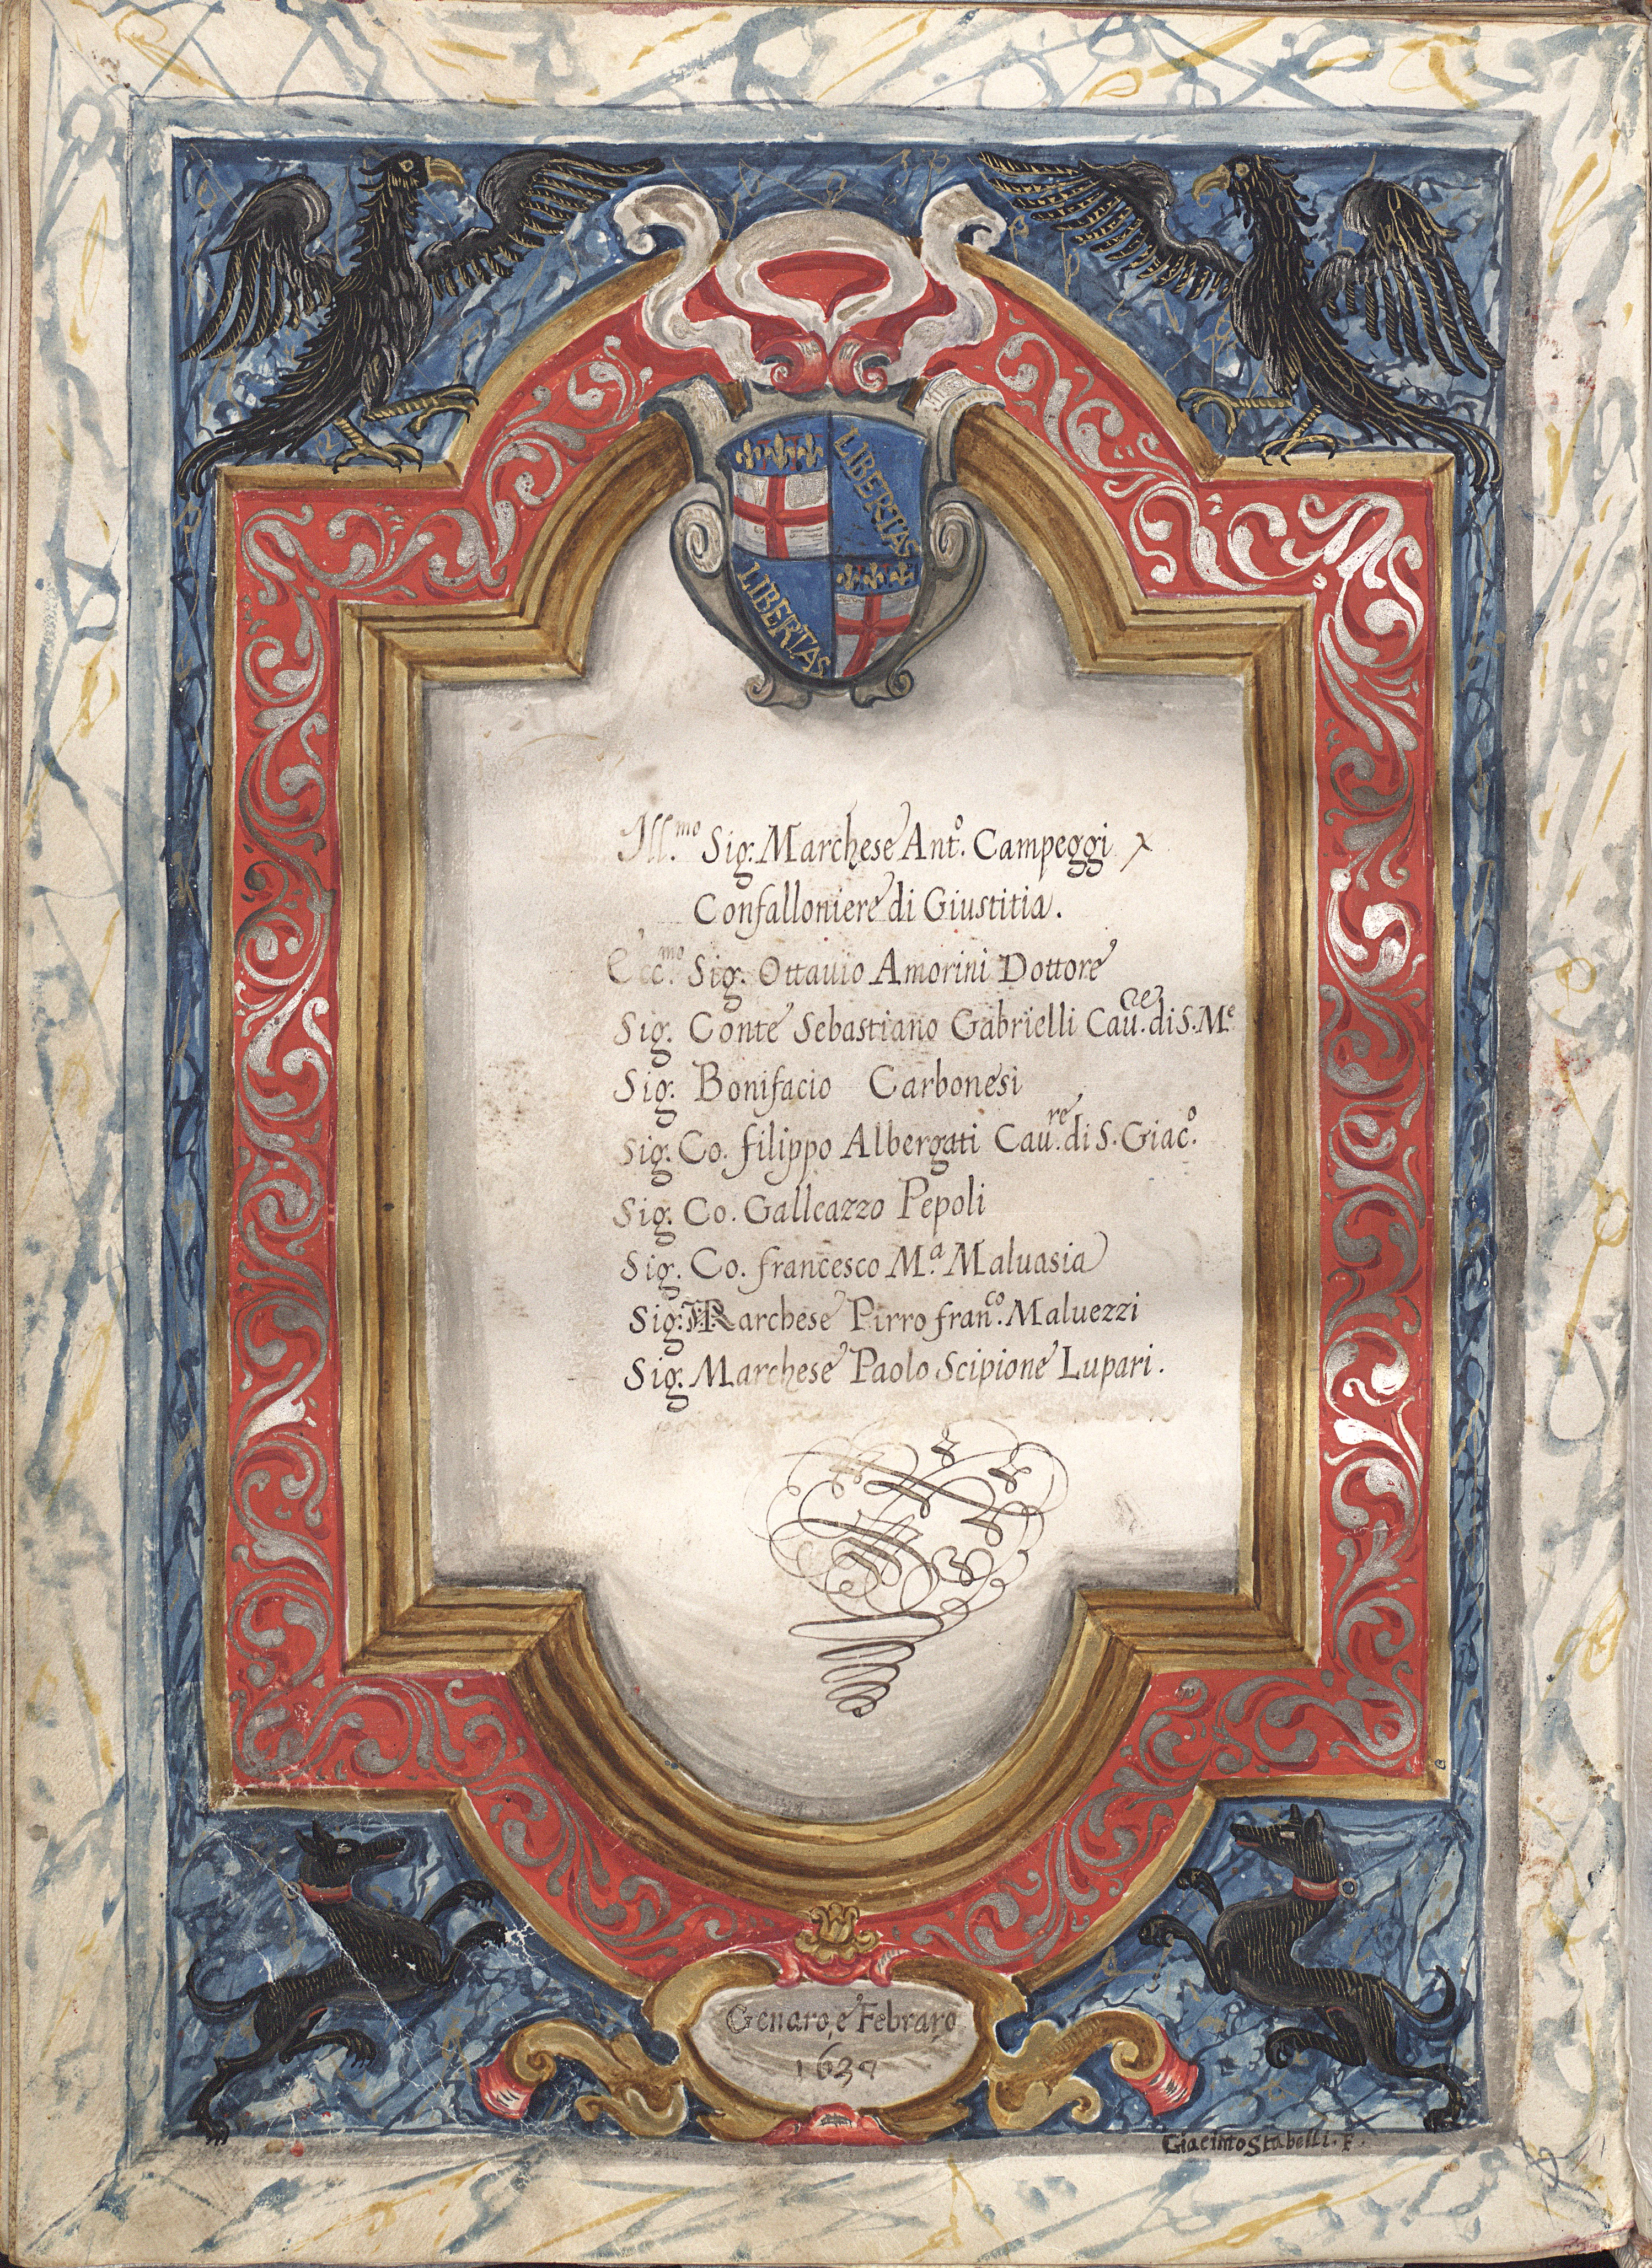 LIBERTAS
LIBERTAS
Ill.mo Sig. Marchese Ant.o Campeggi
Confalloniere di Giustitia.
Ecc.mo Sig. Ottauio Amorini Dottore
Sig. Conte Sebastiano Gabrielli Cau.re di S. M.e
Sig. Bonifacio Carbonesi
Sig. Co. filippo Albergati Cau.re di S. Giac.o
Sig. Co. Galleazzo Pepoli
Sig. Co. francesco M.a Maluasia
Sig. Marchese Pirro fran.co Maluezzi
Sig. Marchese Paolo Scipione Lupari.
Genaro, e Febraro
1637
Giacinto Stabelli. F.